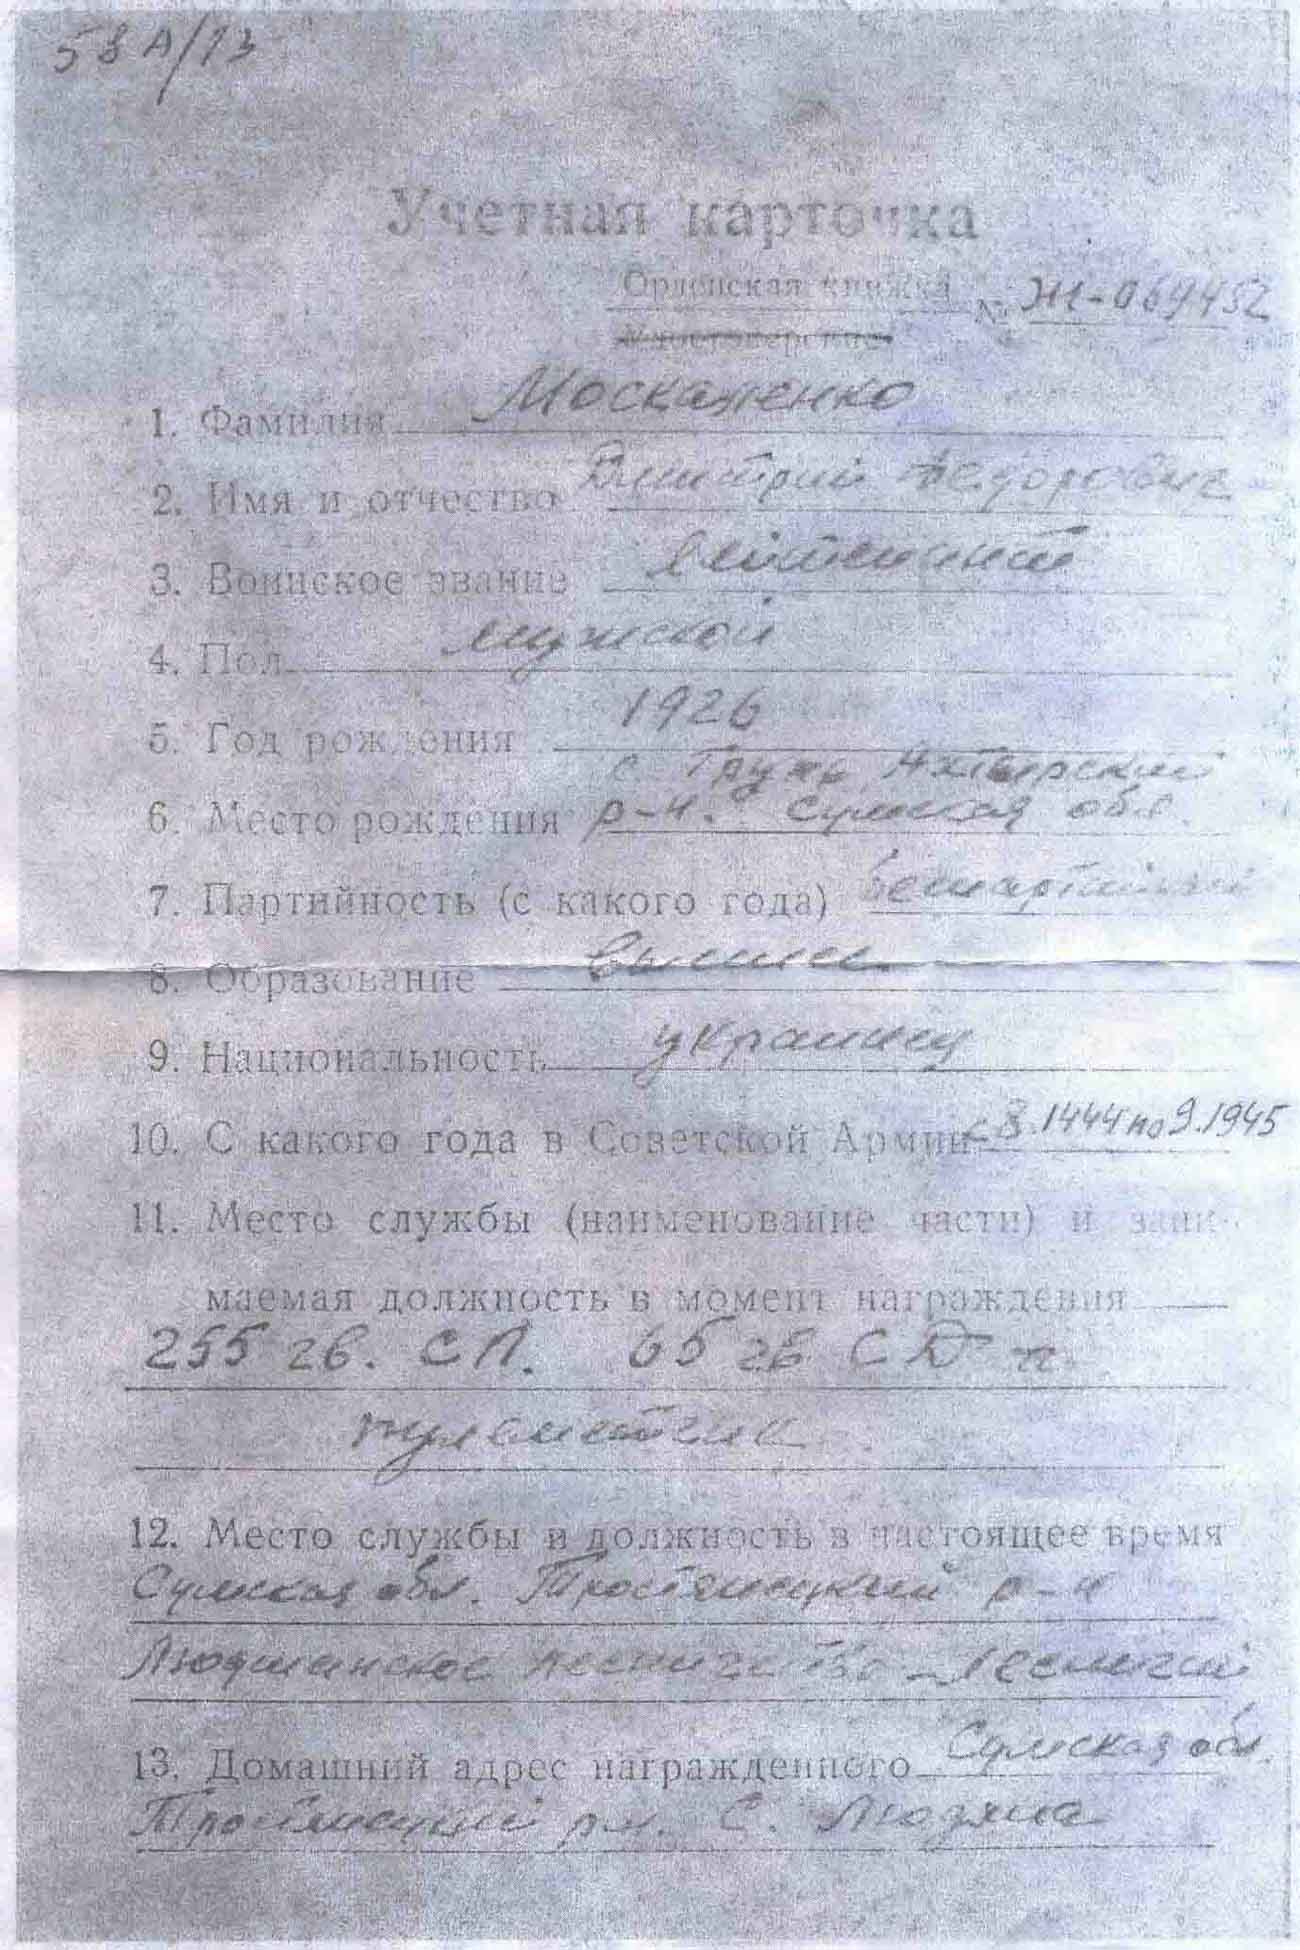 58 А/13
Учетная карточка
Орденская книжка № Ж-069452
Удостоверение
1. Фамилия Москаленко
2. Имя и отчество Дмитрий Федорович
3. Воинское звание лейтенант
4. Пол мужской
5. Год рождения 1926
с Грунь Ахтырский
6. Место рождения р-н. Сумская обл.
7. Партийность (с какого года) беспартийный
8. Образование высшее
9. Национальность украинец
10. С какого года в Советской Армии с 8.1444 по 9.1945
11. Место службы (наименование части) и зани-
маемая должность в момент награждения
255 гв. СП. 65 гв СД
пулеметчик
12. Место службы и должность в настоящее время
Сумская обл. Тростянецкий р-н
лесничество - лесничий
13. Домашний адрес награжденного Сумская обл.
Тростянецкий р-н. С.